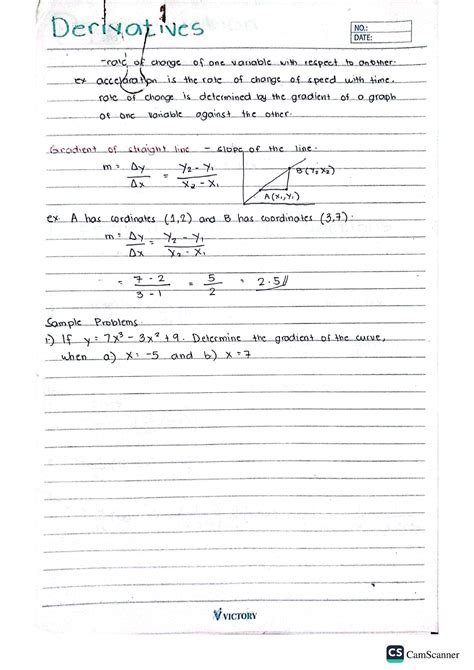 Derivatives
NO.:
DATE:
-rate of change of one variable with respect to another.
ex acceleration is the rate of change of speed with time.
rate of change is determined by the gradient of a graph
of one variable against the other.
Gradient of straight line - slope of the line.
m = Δy / Δx = Y₂ - Y₁ / X₂ - X₁
B (Y₂ X₂)
A (X₁, Y₁)
ex A has cordinates (1,2) and B has coordinates (3,7):
m = Δy / Δx = Y₂ - Y₁ / X₂ - X₁
= 7 - 2 / 3 - 1 = 5 / 2 = 2.5//
Sample Problems
1.) If y = 7x³ - 3x² + 9. Determine the gradient of the curve,
when a) x = -5 and b) x = 7
VICTORY
CS CamScanner